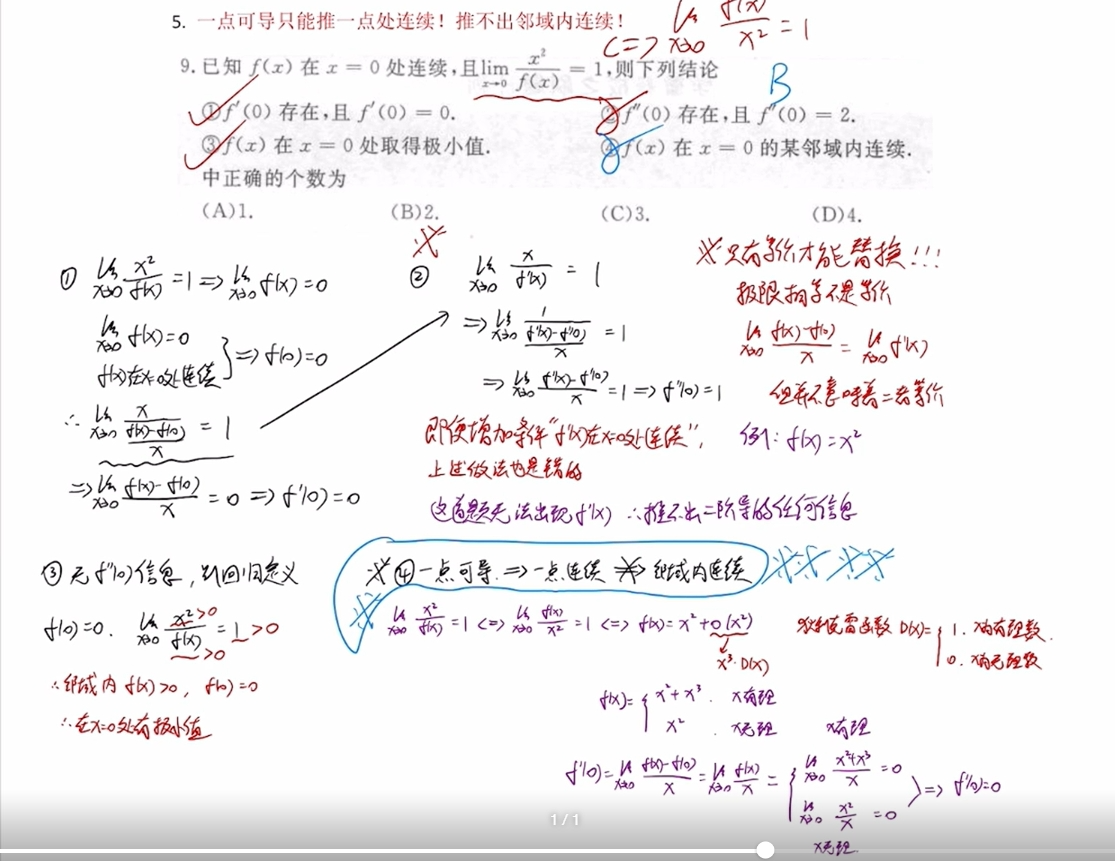 5. 一点可导只能推一点处连续！推不出邻域内连续！
<=> lim x→0 f(x)/x² = 1
9. 已知 f(x) 在 x = 0 处连续,且lim x→0 x²/f(x) = 1,则下列结论
B
①f′(0) 存在,且 f′(0) = 0. ②f″(0) 存在,且 f″(0) = 2.
③f(x) 在 x = 0 处取得极小值. ④f(x) 在 x = 0 的某邻域内连续.
中正确的个数为
(A)1. (B)2. (C)3. (D)4.
① lim x→0 x²/f(x) = 1 => lim x→0 f(x) = 0
lim x→0 f(x) = 0
f(x)在x=0处连续 } => f(0) = 0
∴ lim x→0 x/((f(x)-f(0))/x) = 1
=> lim x→0 (f(x)-f(0))/x = 0 => f′(0) = 0
② lim x→0 x/f′(x) = 1
=> lim x→0 1/((f′(x)-f′(0))/x) = 1
=> lim x→0 (f′(x)-f′(0))/x = 1 => f″(0) = 1
即使增加条件“f′(x)在x=0处连续”,
上述做法也是错的
这道题无法出现f′(x) ∴推不出二阶导的任何信息
※只有等价才能替换!!!
极限相等不是等价
lim x→0 (f(x)-f(0))/x = lim x→0 f′(x)
但并不意味着二者等价
例: f(x) = x²
③ 无f′(0)信息, 则回归定义
f(0)=0. lim x→0 x²/f(x) = 1 > 0
>0
>0
∴邻域内 f(x)>0, f(0)=0
∴在x=0处有极小值
※④一点可导 => 一点连续 ≠> 邻域内连续
lim x→0 x²/f(x) = 1 <=> lim x→0 f(x)/x² = 1 <=> f(x) = x²+o(x²)
x³·D(x)
狄利克雷函数 D(x) = { 1. x为有理数
0. x为无理数
f(x) = { x²+x³. x有理
x². x无理
x有理
f′(0) = lim x→0 (f(x)-f(0))/x = lim x→0 f(x)/x = { lim x→0 (x²+x³)/x = 0
lim x→0 x²/x = 0 } => f′(0)=0
x无理.
1 / 1